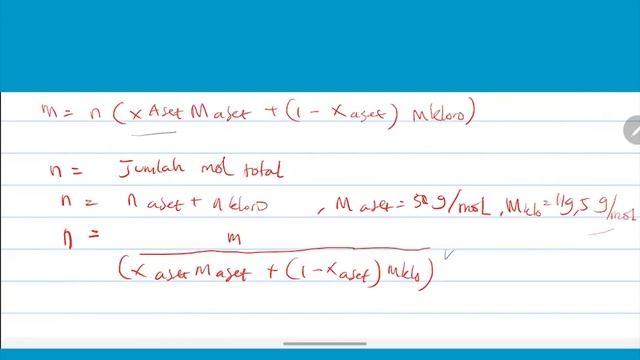 m = n (xAset Maset + (1 - xaset) Mkloro)
n = Jumlah mol total
n = naset + nkloro , Maset = 58 g/mol, Mklo = 119,5 g/mol
n = m
(xaset Maset + (1-xaset) Mklo)